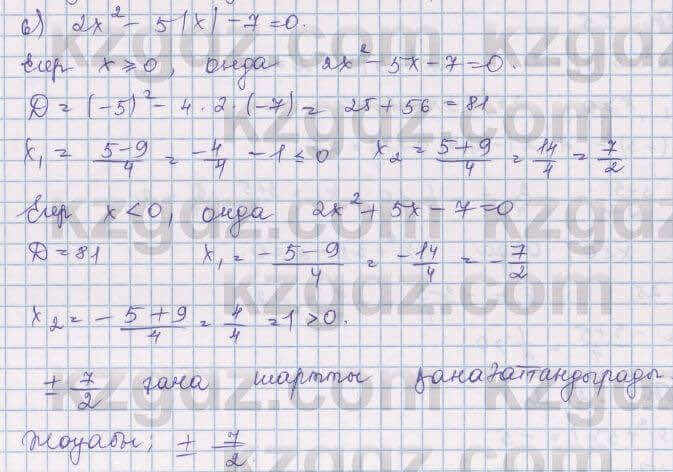 в) 2x² - 5|x| - 7 = 0.
Егер x ≥ 0, онда 2x² - 5x - 7 = 0.
D = (-5)² - 4 · 2 · (-7) = 25 + 56 = 81
x₁ = (5-9)/4 = -4/4 - 1 ≤ 0 x₂ = (5+9)/4 = 14/4 = 7/2
Егер x < 0, онда 2x² + 5x - 7 = 0
D = 81 x₁ = (-5-9)/4 = -14/4 = -7/2
x₂ = (-5+9)/4 = 4/4 = 1 > 0.
± 7/2 ғана шартты қанағаттандырады.
Жауабы; ± 7/2.
kzgdz.com